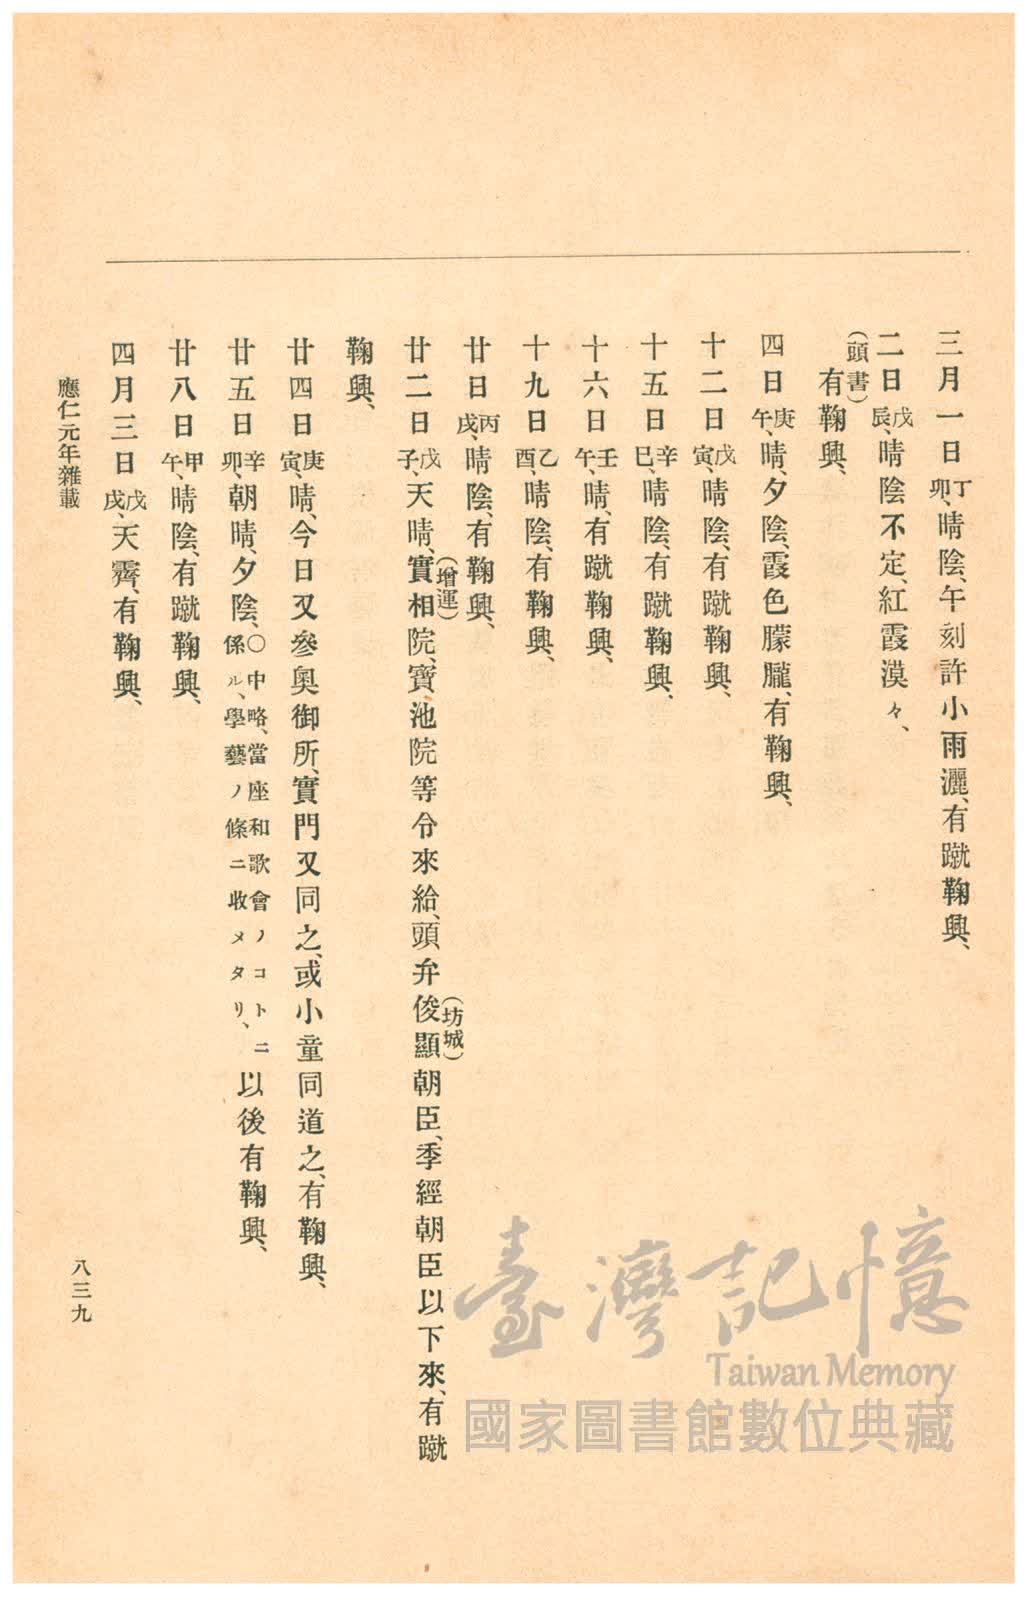 三月一日丁卯、晴陰、午刻許小雨灑、有蹴鞠興、
二日戊辰、晴陰不定、紅霞漠々、
(頭書)
有鞠興、
四日庚午、晴、夕陰、霞色朦朧、有鞠興、
十二日戊寅、晴陰、有蹴鞠興、
十五日辛巳、晴陰、有蹴鞠興、
十六日壬午、晴、有蹴鞠興、
十九日乙酉、晴陰、有鞠興、
廿日丙戌、晴陰、有鞠興、
廿二日戊子、天晴、實相院、寶池院等令來給、頭弁俊顯朝臣、季經朝臣以下來、有蹴
(增運)
(坊城)
鞠興、
廿四日庚寅、晴、今日又參奥御所、實門又同之、或小童同道之、有鞠興、
廿五日辛卯、朝晴、夕陰、○中略、當座和歌會ノコトニ係ル、學藝ノ條ニ收メタリ、以後有鞠興、
廿八日甲午、晴陰、有蹴鞠興、
四月三日戊戌、天霽、有鞠興、
應仁元年雜載
八三九
臺灣記憶
Taiwan Memory
國家圖書館數位典藏